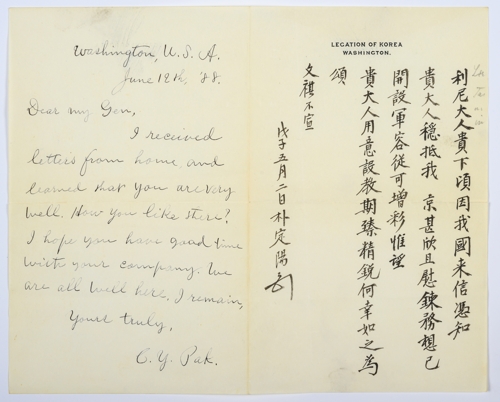 Washington, U.S.A.
June 12th, '88.
Dear my Gen,
I received
letters from home and
learned that you are very
well. How you like there?
I hope you have good time
with your company. We
are all well here, I remain,
Yours truly,
C. Y. Pak.
LEGATION OF KOREA
WASHINGTON.
利尼大人貴下頃因我國来信憑知
貴大人穩抵我 京甚欣且慰鍊務想已
開設軍容從可增彩惟望
貴大人用意設教期臻精銳何幸如之為
頌
文祺不宣
戊子五月二日朴定陽